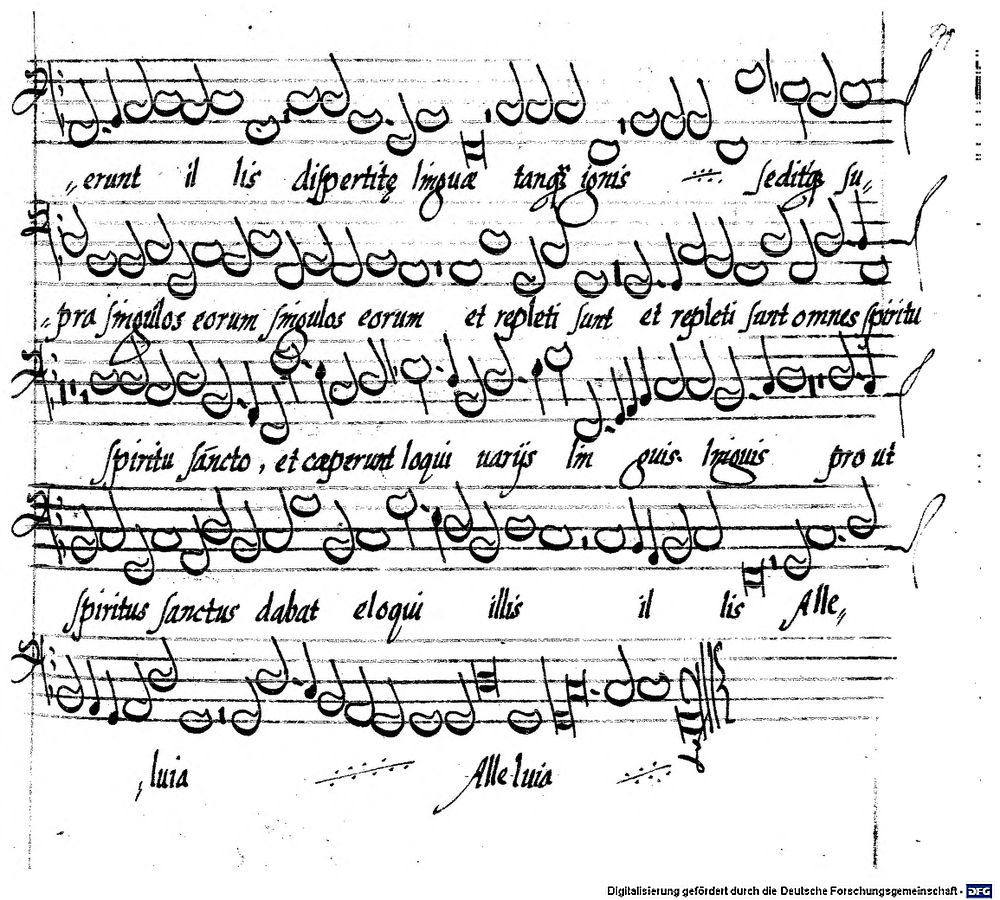 „erunt il lis dispertitę linguæ tanq̃ ignis seditq; su„
„pra singulos eorum singulos eorum et repleti sunt et repleti sunt omnes spiritu
spiritu sāncto, et cæperunt loqui uarijs lin guis. linguis pro ut
spiritus sanctus dabat eloqui illis il lis Alle„
„luia Alleluia
Digitalisierung gefördert durch die Deutsche Forschungsgemeinschaft - DFG